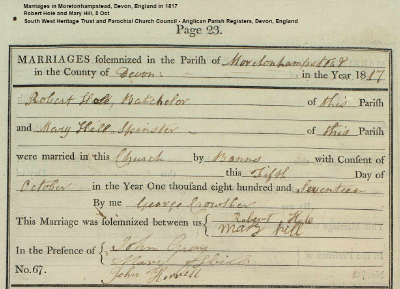 Marriages in Moretonhampstead, Devon, England in 1817
Robert Hole and Mary Hill, 5 Oct
South West Heritage Trust and Parochial Church Council - Anglican Parish Registers, Devon, England
Page 23.
MARRIAGES solemnized in the Parish of Moretonhampstead
in the County of Devon in the Year 1817
Robert Hole, Batchelor of this Parish
and Mary Hill Spinster of this Parish
were married in this Church by Banns with Consent of
this Fifth Day of
October in the Year One thousand eight hundred and Seventeen
By me George Crowther
This Marriage was solemnized between us Robert Hole
Mary Hill
In the Presence of John
Mary
No. 67. John